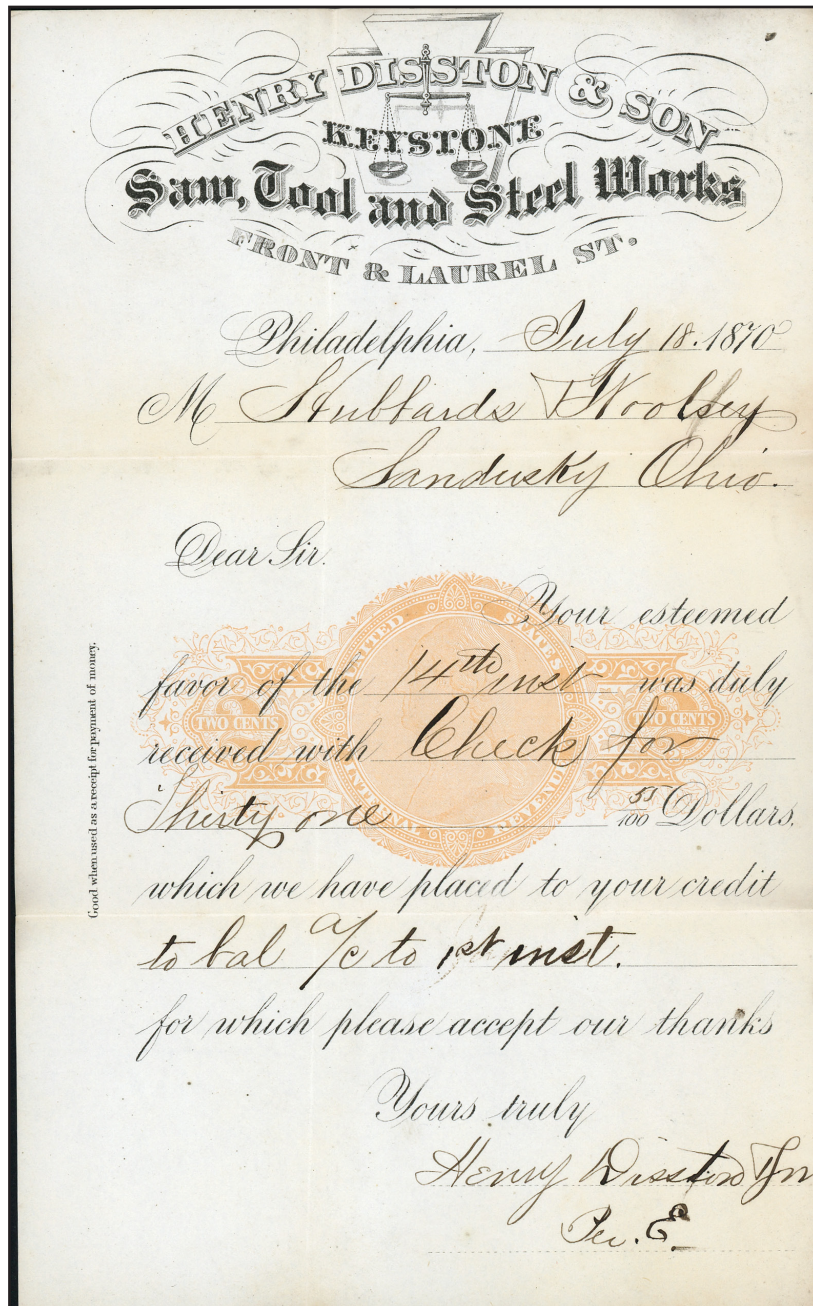 HENRY DISSTON & SON
KEYSTONE
Saw, Tool and Steel Works
FRONT & LAUREL ST.
Philadelphia, July 18. 1870
M Hubbards & Woolsey
Sandusky Ohio.
Dear Sir.
Your esteemed
favor of the 14th inst was duly
received with Check for
Thirty one 55/100 Dollars.
which we have placed to your credit
to bal a/c to 1st inst.
for which please accept our thanks
Yours truly
Henry Disston & Sn
Per. E.
UNITED STATES
TWO CENTS
TWO CENTS
INTERNAL REVENUE
Good when used as a receipt for payment of money.